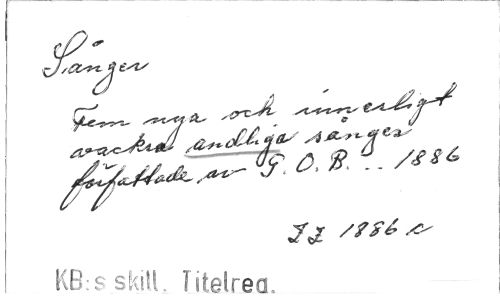 Sånger
Fem nya och innerligt
vackra andliga sånger
författade av G. O. B. .. 1886
1886
KB:s skill. Titelreg.